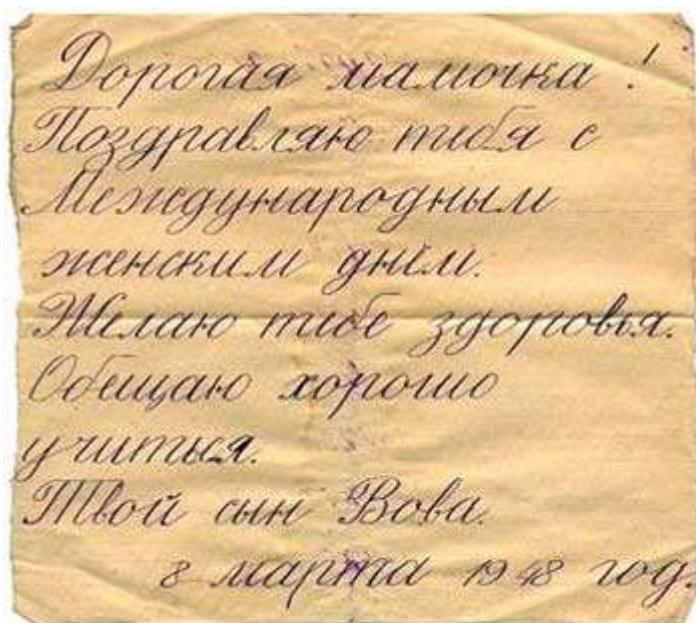 Дорогая мамочка!
Поздравляю тебя с
Международным
женским днём.
Желаю тебе здоровья.
Обещаю хорошо
учиться.
Твой сын Вова.
8 марта 1948 год.